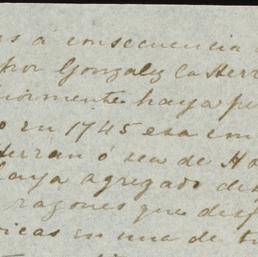 as á consecuencia
por Gonzalez la Herr
iormente haya pu
o en 1745 esa em
Herran ó sea de Ho
haya agregado des
razones que desp
icas en una de tu